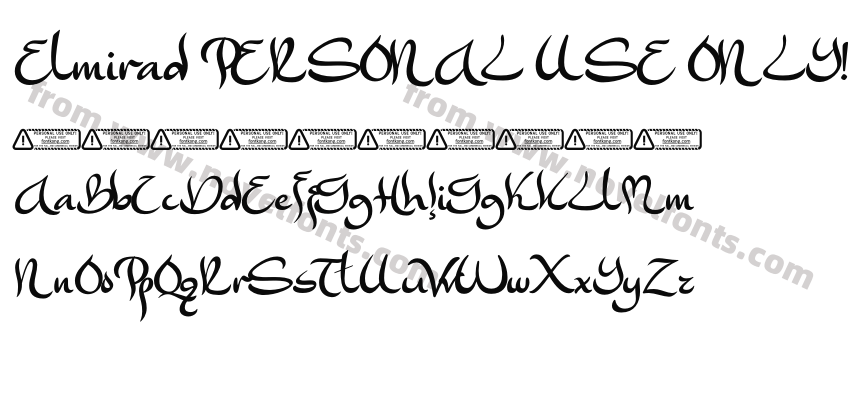 Elmirad PERSONAL USE ONLY!
PERSONAL USE ONLY! PLEASE VISIT fontkong.com PERSONAL USE ONLY! PLEASE VISIT fontkong.com PERSONAL USE ONLY! PLEASE VISIT fontkong.com PERSONAL USE ONLY! PLEASE VISIT fontkong.com PERSONAL USE ONLY! PLEASE VISIT fontkong.com PERSONAL USE ONLY! PLEASE VISIT fontkong.com PERSONAL USE ONLY! PLEASE VISIT fontkong.com PERSONAL USE ONLY! PLEASE VISIT fontkong.com PERSONAL USE ONLY! PLEASE VISIT fontkong.com PERSONAL USE ONLY! PLEASE VISIT fontkong.com
AaBbCcDdEeFfGgHhIiJjKkLlMm
NnOoPpQqRrSsTtUuVvWwXxYyZz
from www.nokiafonts.com
from www.nokiafonts.com